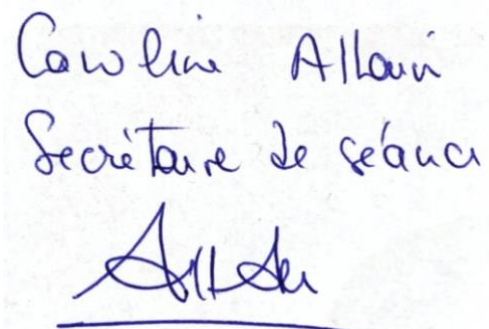 Caroline Allain
Secrétaire de séance